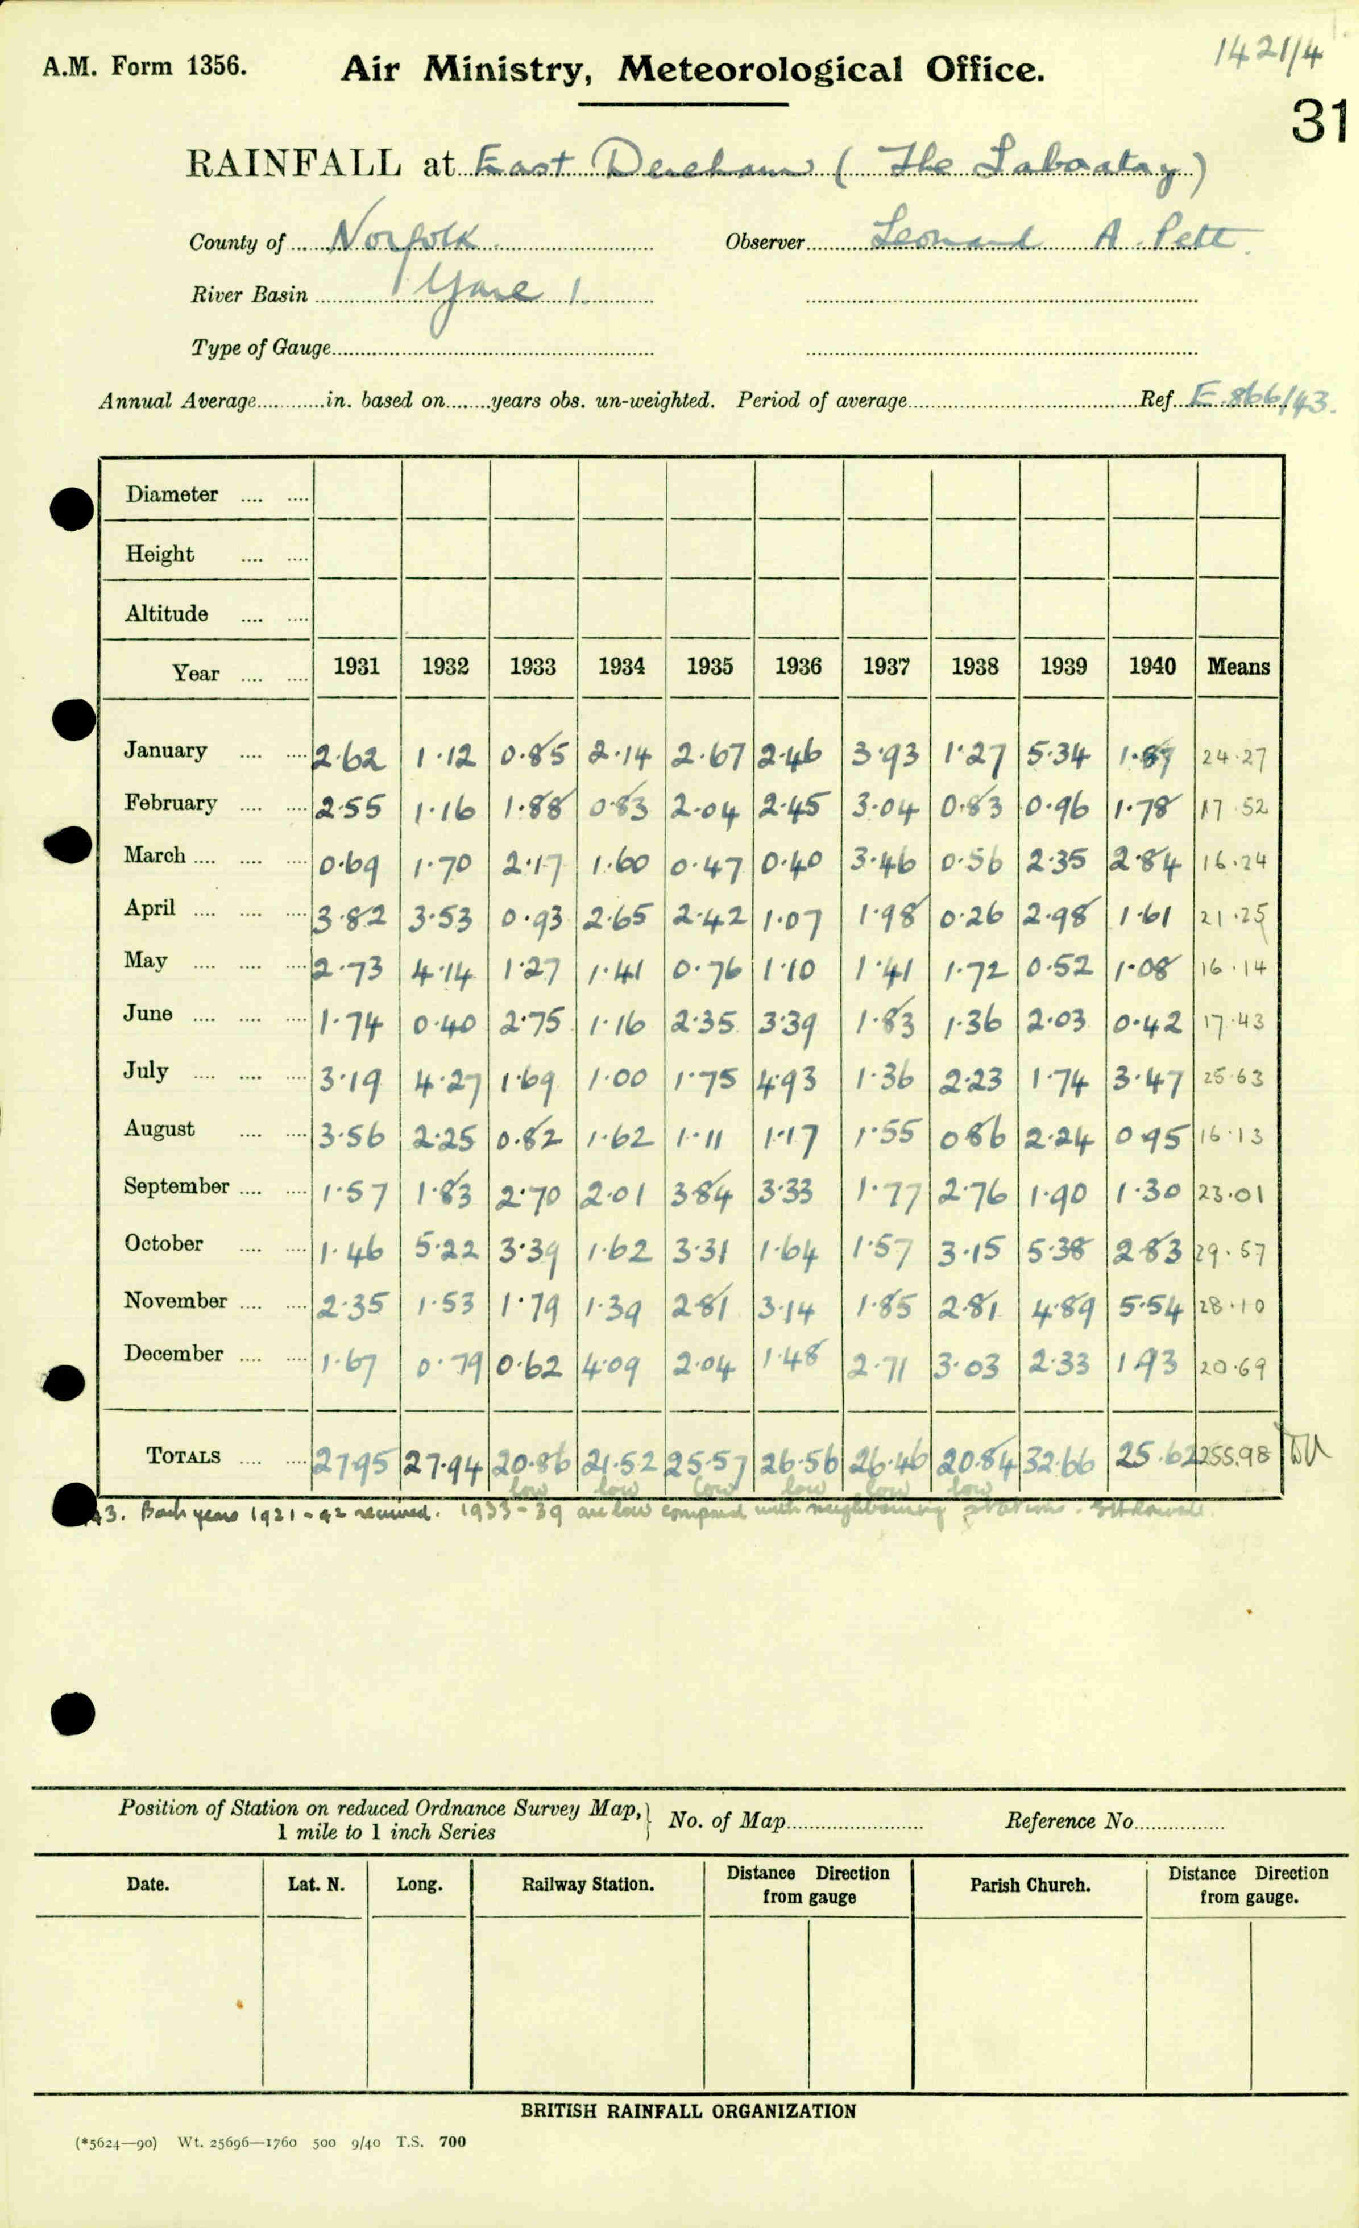 1421/4
A.M. Form 1356. Air Ministry, Meteorological Office.
31
RAINFALL at East Dereham (The Laboratory)
County of Norfolk Observer Leonard A. Pett.
River Basin Yare 1.
Type of Gauge
Annual Average in. based on years obs. un-weighted. Period of average Ref. E.866/43.
Diameter
Height
Altitude
Year 1931 1932 1933 1934 1935 1936 1937 1938 1939 1940 Means
January 2.62 1.12 0.85 2.14 2.67 2.46 3.93 1.27 5.34 1.87 24.27
February 2.55 1.16 1.88 0.83 2.04 2.45 3.04 0.83 0.96 1.78 17.52
March 0.69 1.70 2.17 1.60 0.47 0.40 3.46 0.56 2.35 2.84 16.24
April 3.82 3.53 0.93 2.65 2.42 1.07 1.98 0.26 2.98 1.61 21.25
May 2.73 4.14 1.27 1.41 0.76 1.10 1.41 1.72 0.52 1.08 16.14
June 1.74 0.40 2.75 1.16 2.35 3.39 1.83 1.36 2.03 0.42 17.43
July 3.19 4.27 1.69 1.00 1.75 4.93 1.36 2.23 1.74 3.47 25.63
August 3.56 2.25 0.82 1.62 1.11 1.17 1.55 0.86 2.24 0.95 16.13
September 1.57 1.83 2.70 2.01 3.84 3.33 1.77 2.76 1.90 1.30 23.01
October 1.46 5.22 3.39 1.62 3.31 1.64 1.57 3.15 5.38 2.83 29.57
November 2.35 1.53 1.79 1.39 2.81 3.14 1.85 2.81 4.89 5.54 28.10
December 1.67 0.79 0.62 4.09 2.04 1.48 2.71 3.03 2.33 1.93 20.69
TOTALS 27.95 27.94 20.86 21.52 25.57 26.56 26.46 20.84 32.66 25.62 255.98
low low low low low low
43. Back years 1921-42 received. 1933-39 are low compared with neighbouring stations.
Position of Station on reduced Ordnance Survey Map, 1 mile to 1 inch Series No. of Map Reference No.
Date. Lat. N. Long. Railway Station. Distance Direction from gauge Parish Church. Distance Direction from gauge.
BRITISH RAINFALL ORGANIZATION
(*5624—90) Wt. 25696—1760 500 9/40 T.S. 700